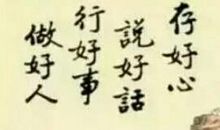 存好心
說好話
行好事
做好人